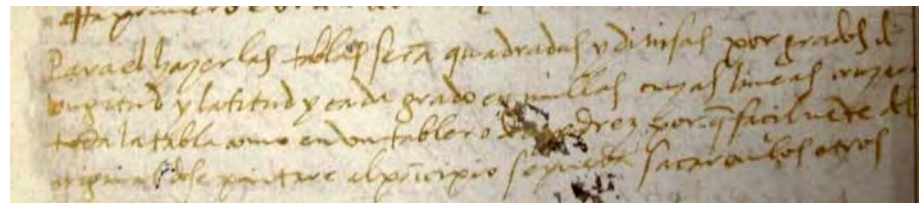 esta primero
Para el hazer las tablas será quadradas y diuisas por grados d
longitud y latitud y cada grado en millas cuyas lineas cruzan
toda la tabla como en vn tablero de axedrez por q̃ facilmẽte del
original q̃ se pintare al prĩcipio se pueda sacar otros